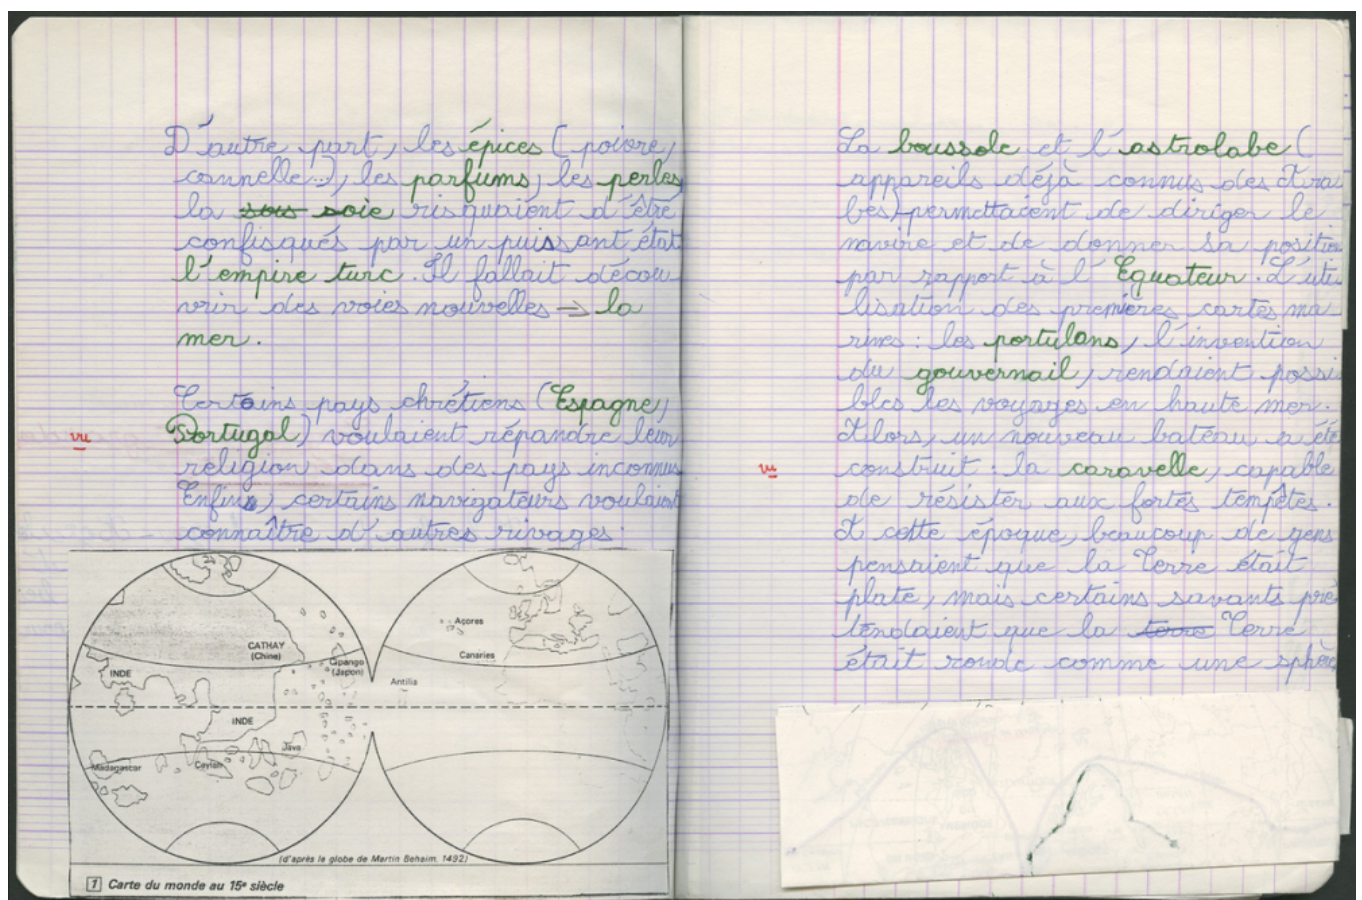 D'autre part, les épices (poivre,
cannelle...), les parfums, les perles,
la sous soie risquaient d'être
confisqués par un puissant état
l'empire turc. Il fallait décou
vrir des voies nouvelles → la
mer.
Certains pays chrétiens (Espagne,
Portugal) voulaient répandre leur
vu
religion dans des pays inconnus
Enfin, certains navigateurs voulaient
connaître d'autres rivages.
CATHAY
(Chine)
INDE
Cipango
(Japon)
INDE
Java
Madagascar
Ceylan
Açores
Canaries
Antilia
(d'après le globe de Martin Behaim, 1492)
1 Carte du monde au 15e siècle
La boussole et l'astrolabe (
appareils déjà connus des Ara
bes) permettaient de diriger le
navire et de donner sa position
par rapport à l'Equateur. L'uti
lisation des premières cartes ma
rines : les portulans, l'invention
du gouvernail, rendaient possi
bles les voyages en haute mer.
Alors, un nouveau bateau a été
vu
construit : la caravelle, capable
de résister aux fortes tempêtes.
A cette époque, beaucoup de gens
pensaient que la Terre était
plate, mais certains savants pré
tendaient que la terre Terre
était ronde comme une sphère